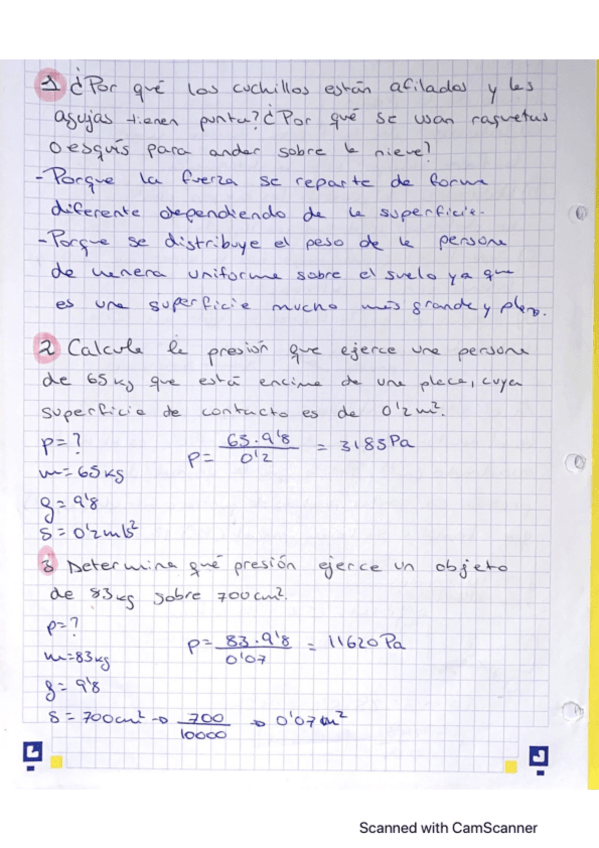 1 ¿Por qué los cuchillos están afilados y las
agujas tienen punta? ¿Por qué se usan raquetas
o esquís para andar sobre la nieve?
- Porque la fuerza se reparte de forma
diferente dependiendo de la superficie.
- Porque se distribuye el peso de la persona
de manera uniforme sobre el suelo ya que
es una superficie mucho más grande y plana.
2 Calcula la presión que ejerce una persona
de 65 kg que está encima de una placa, cuya
superficie de contacto es de 0'2 m².
p = ?
p = 65 · 9'8 / 0'2 = 3185 Pa
m = 65 kg
g = 9'8
s = 0'2 m/s²
3 Determina qué presión ejerce un objeto
de 83 kg sobre 700 cm².
p = ?
p = 83 · 9'8 / 0'07 = 11620 Pa
m = 83 kg
g = 9'8
s = 700 cm² → 700 / 10000 → 0'07 m²
Scanned with CamScanner